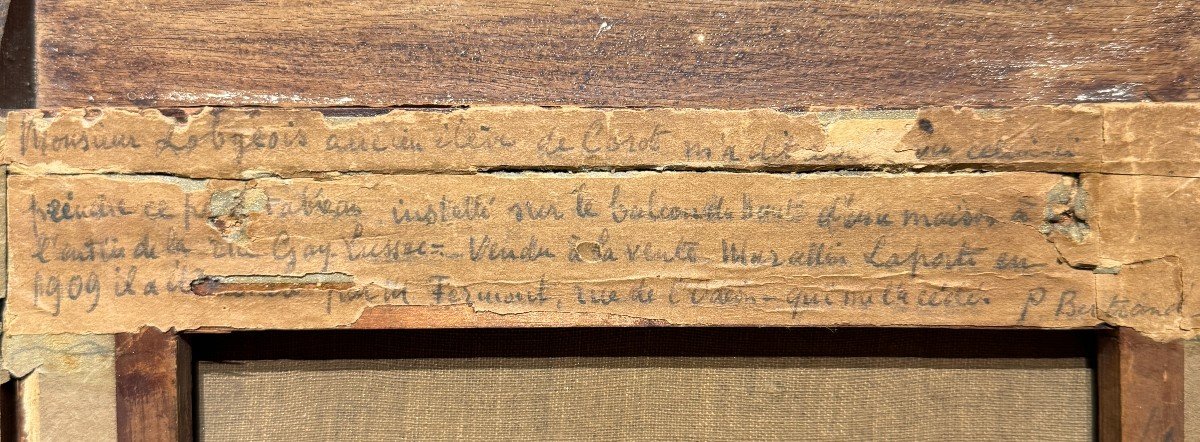 Monsieur Lobgeois ancien élève de Corot m'a dit
peindre ce petit tableau installé sur le balcon du haut d'une maison à
l'entrée de la rue Gay Lussac – Vendu à la vente Marallin Laporte en
1909 il a été par M Fermont, rue de l'Odéon – qui me l'a cédé. P Bertrand